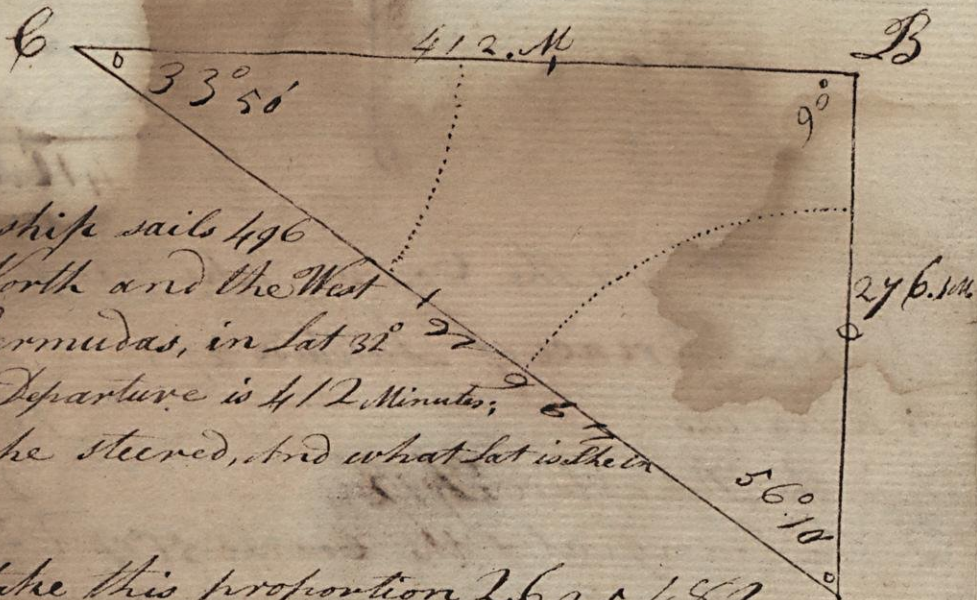 C 412.M B
33° 50'
90
ship sails 496
North and the West
Bermudas, in Lat 32°
276.M
Departure is 412 Minutes;
he steered, And what Lat is She in
56°.10
take this proportion